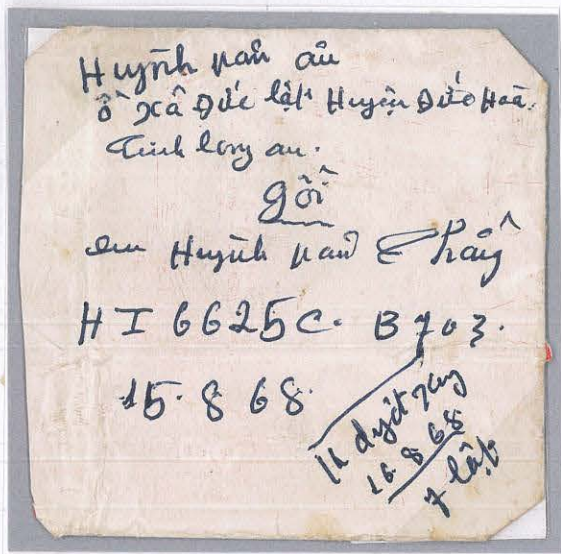 Huỳnh văn ấn
ở xã Đức lập Huyện Đức Hoà.
Tỉnh long an.
gởi
em Huỳnh văn Thấy
HI 6625C. B703.
15.8 68.
duyệt xong
16.8 68
7 lập